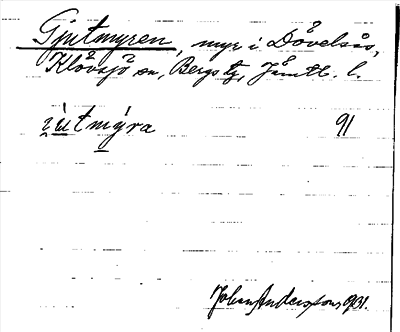 Gjutmyren, myr i Dåvelsås,
Klövsjö sn, Bergs tg, Jämtl. l.
jùtmýra 91
Johan Andersson 1931.